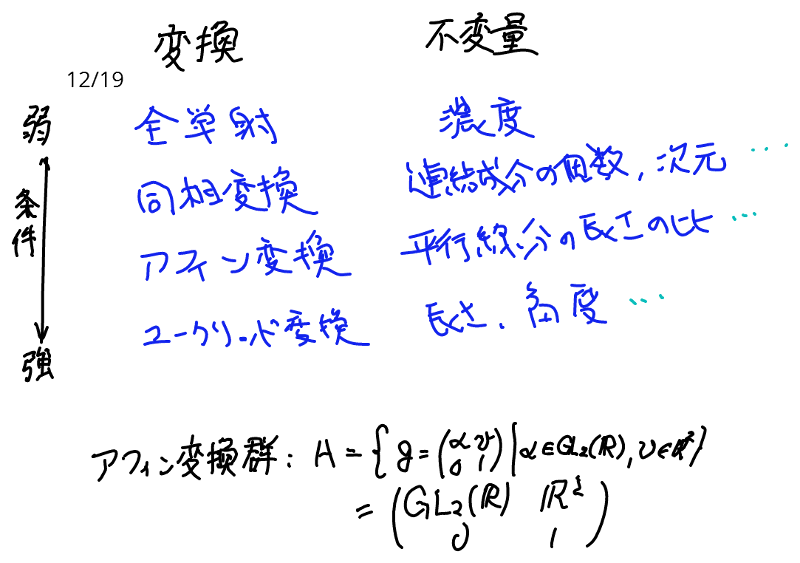 変換 不変量
12/19
弱 全単射 濃度
条件 同相変換 連結成分の個数, 次元 …
アフィン変換 平行線分の長さの比 …
ユークリッド変換 長さ, 角度 …
強
アフィン変換群: A = { g = (α v / 0 1) | α ∈ GL₂(ℝ), v ∈ ℝ² }
= (GL₂(ℝ) ℝ² / 0 1)